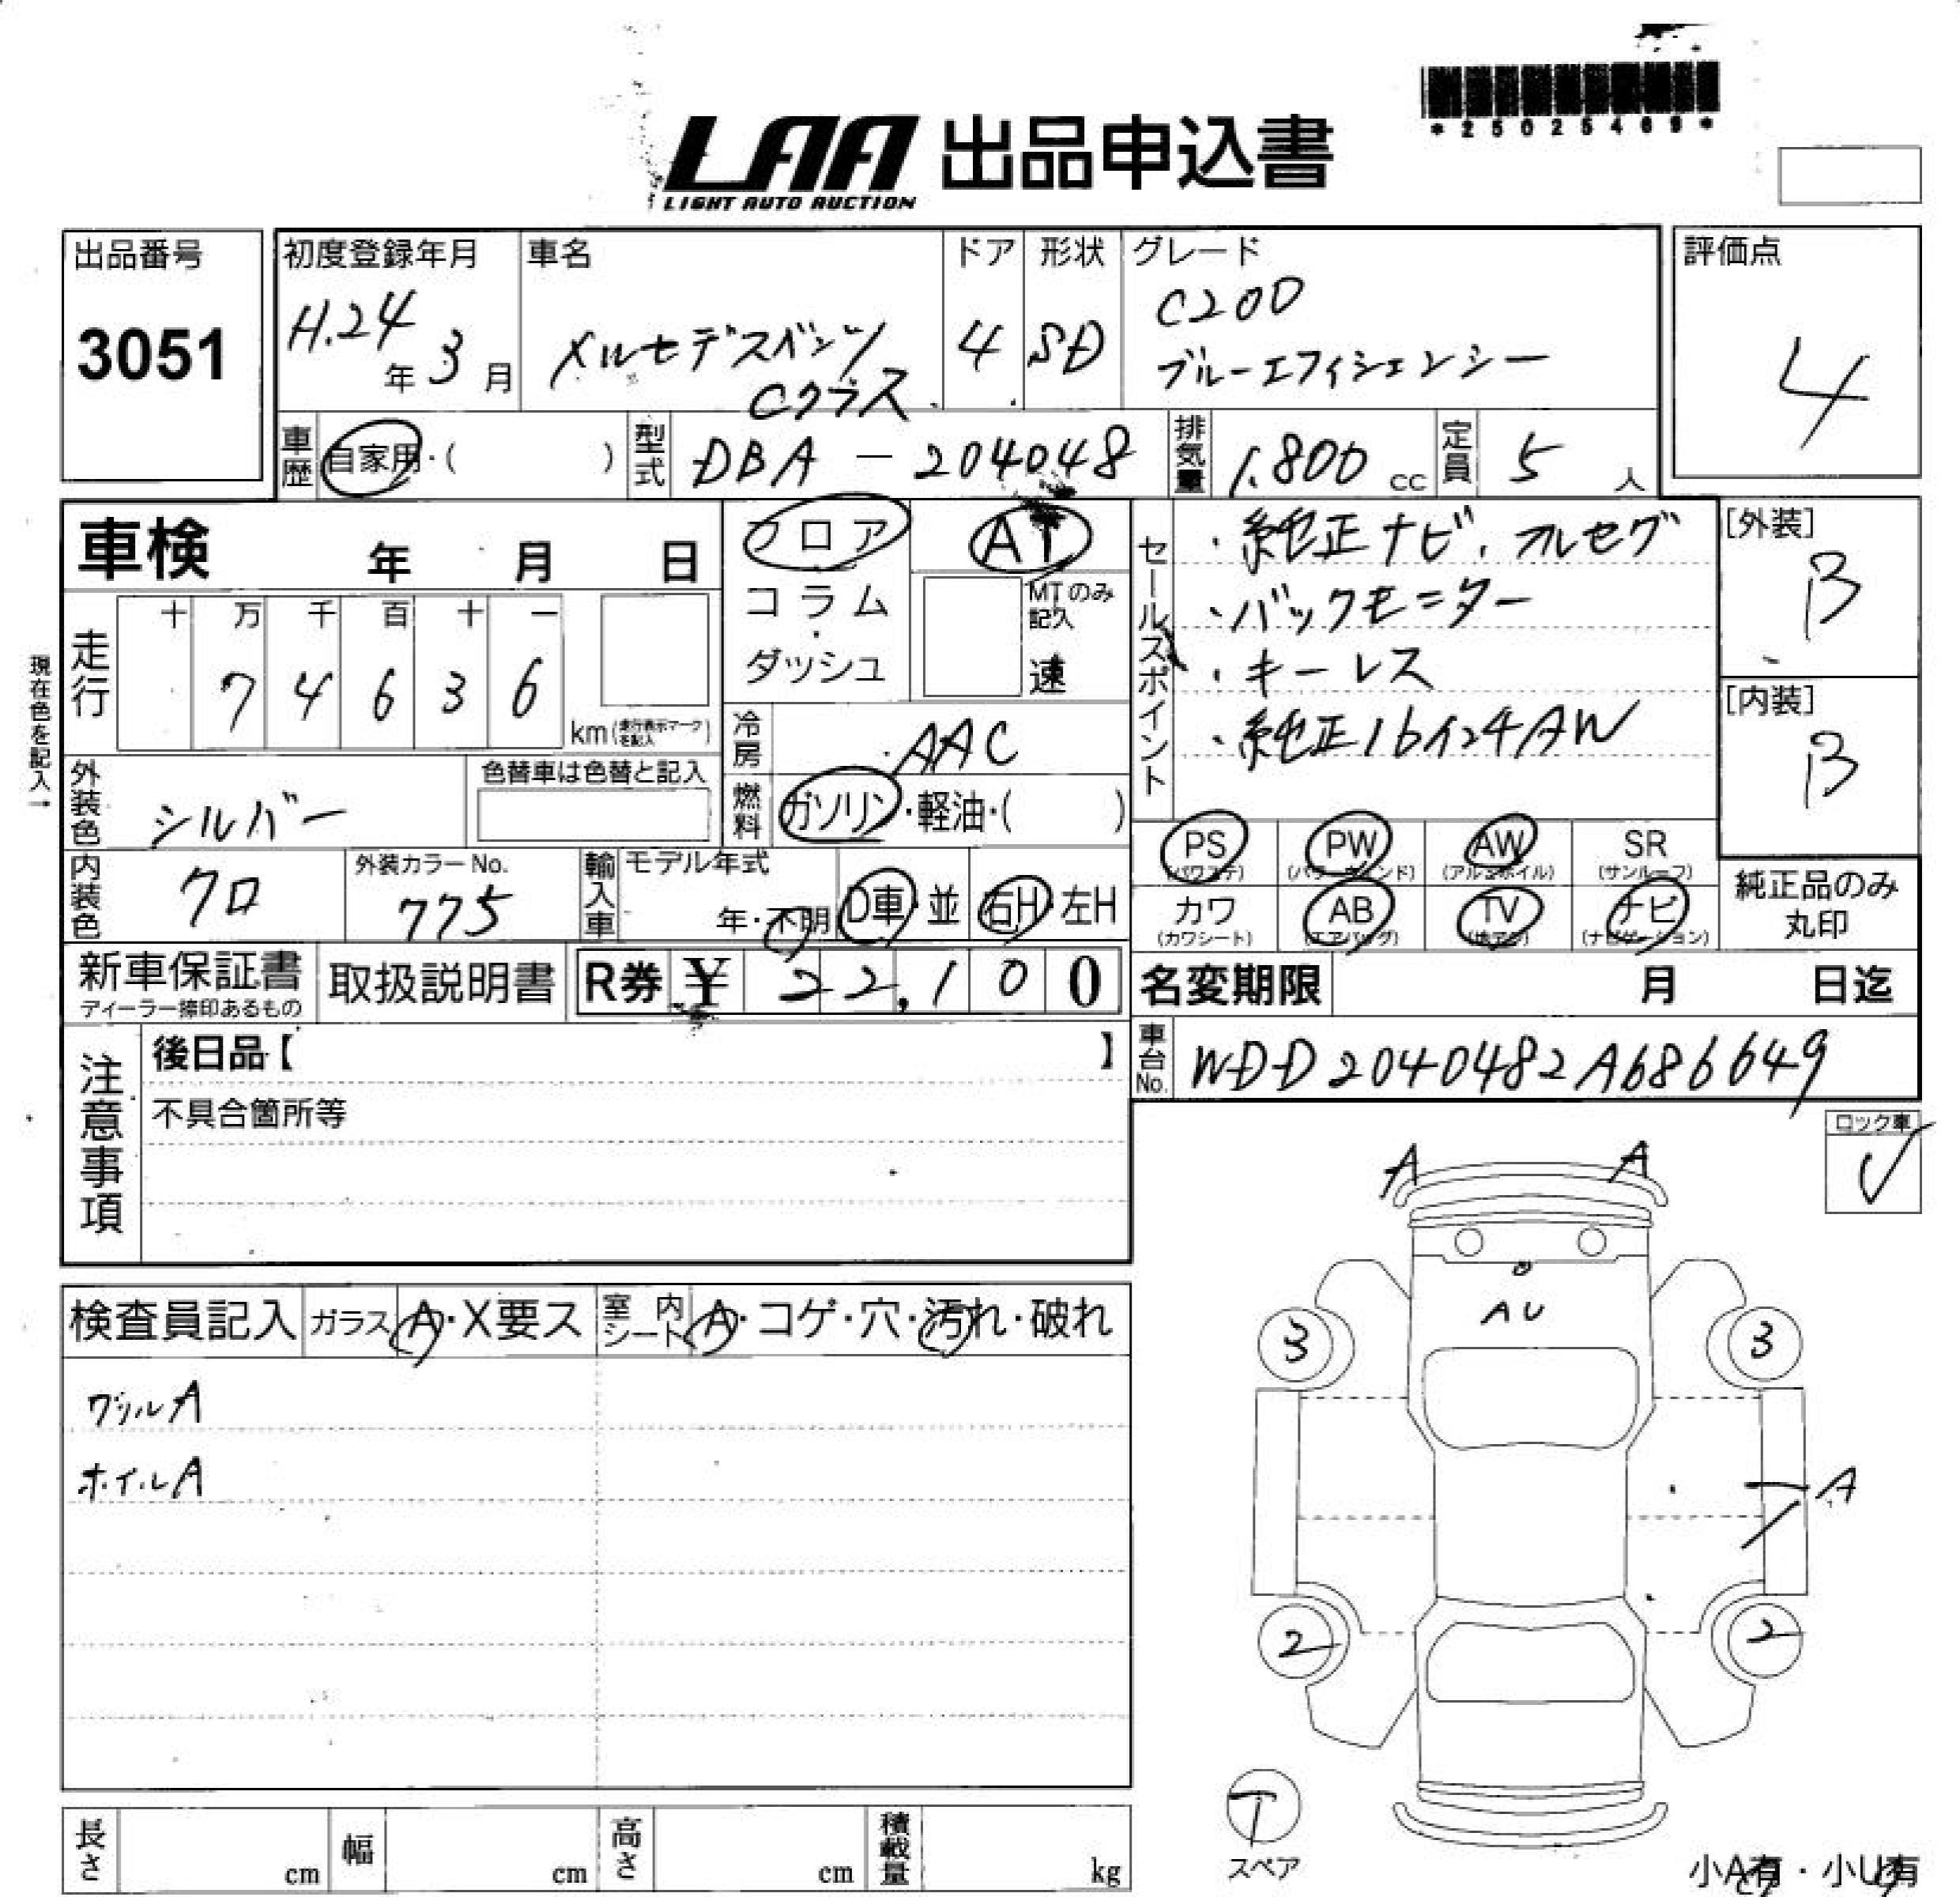 *25025469*
LAA 出品申込書
LIGHT AUTO AUCTION
出品番号
3051
初度登録年月
H.24年 3月
車名
メルセデスベンツ
Cクラス
ドア
4
形状
SD
グレード
C200
ブルーエフィシェンシー
評価点
4
車歴 自家用・( )
型式 DBA - 204048
排気量 1.800 cc
定員 5 人
車検 年 月 日
フロア
コラム
・
ダッシュ
AT
MTのみ
記入
速
現在色を記入→
走行
十 万 千 百 十 一
7 4 6 3 6
km(走行表示マークを記入)
冷房 AAC
燃料 ガソリン・軽油・( )
外装色 シルバー
色替車は色替と記入
内装色 クロ
外装カラーNo.
775
輸入車
モデル年式
年・不明
D車・並
右H・左H
セールスポイント
・純正ナビ、フルセグ
・バックモニター
・キーレス
・純正16インチAW
[外装]
B
[内装]
B
PS (パワステ)
PW (パワーウィンド)
AW (アルミホイル)
SR (サンルーフ)
カワ (カワシート)
AB (エアバッグ)
TV (地デジ)
ナビ (ナビゲーション)
純正品のみ
丸印
新車保証書
ディーラー捺印あるもの
取扱説明書
R券 ¥ 22,100
名変期限 月 日迄
車台No. WDD2040482A686649
注意事項
後日品【 】
不具合箇所等
ロック車
✓
検査員記入 ガラス A・X要ス 室内シート A・コゲ・穴・汚れ・破れ
ホイルA
A A
AU
3 3
A
2 2
T
スペア
小A有・小U有
長さ cm 幅 cm 高さ cm 積載量 kg